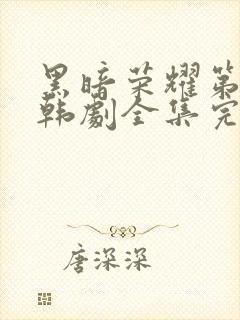 黑暗荣耀第
韩剧全集完
唐深深